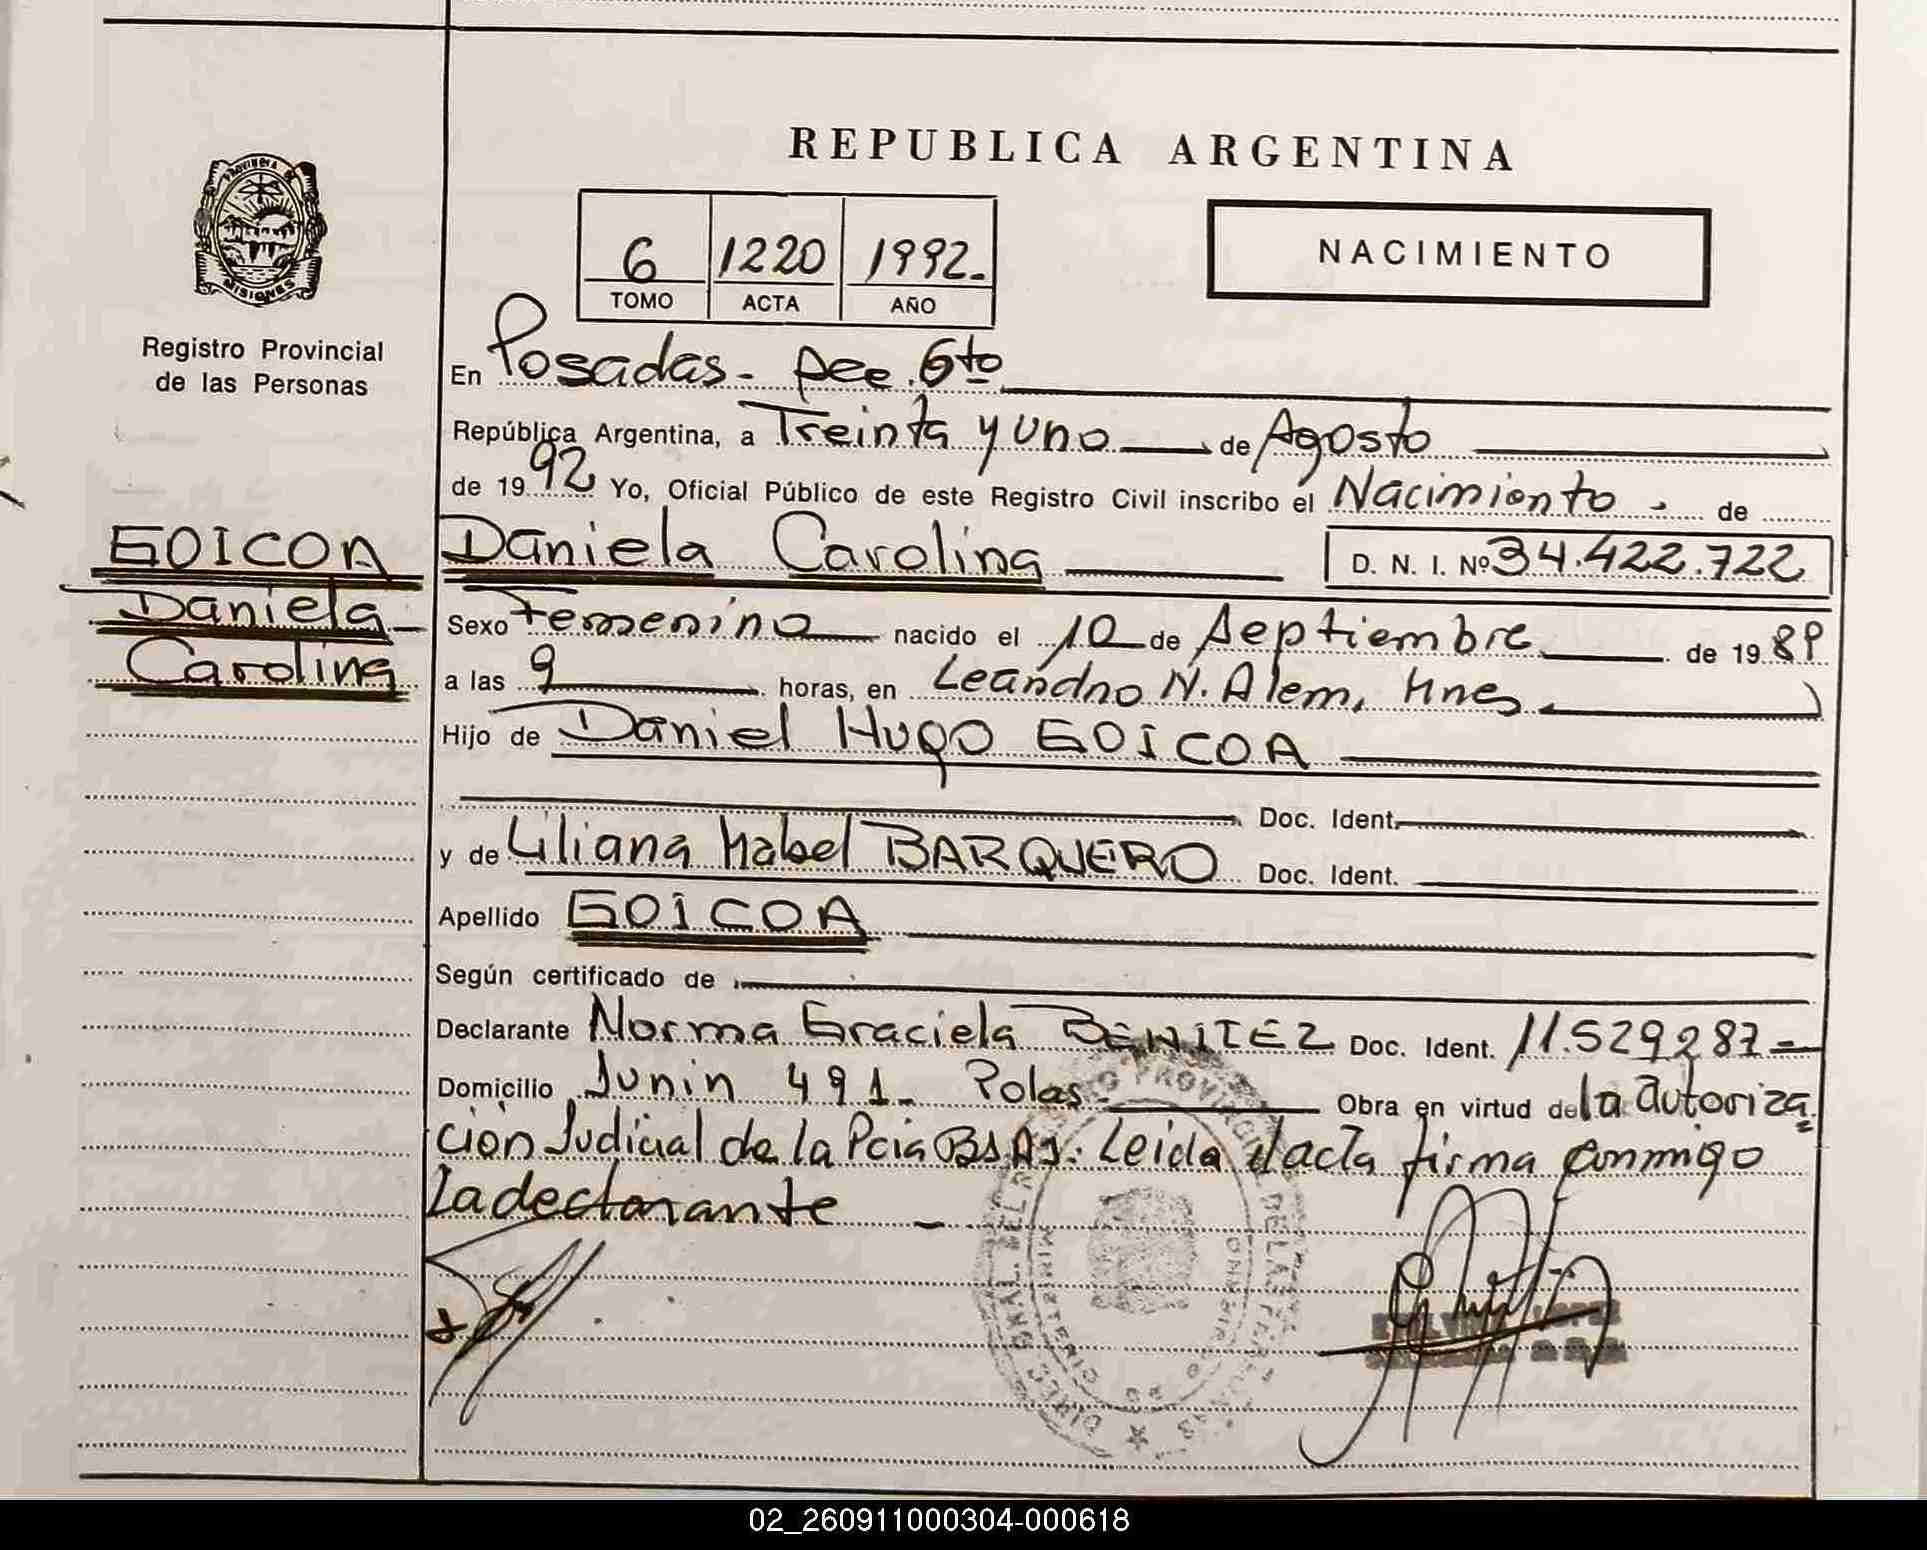 REPUBLICA ARGENTINA
PROVINCIA DE
MISIONES
6 1220 1992.-
TOMO ACTA AÑO
NACIMIENTO
Registro Provincial
de las Personas
En Posadas - Secc. 6to
República Argentina, a Treinta y uno de Agosto
de 1992 Yo, Oficial Público de este Registro Civil inscribo el Nacimiento - de
GOICOA
Daniela
Carolina
Daniela Carolina D. N. I. Nº 34.422.722
Sexo Femenino nacido el 10 de Septiembre de 1989
a las 9 horas, en Leandro N. Alem, Mnes
Hijo de Daniel Hugo GOICOA
Doc. Ident.
y de Liliana Mabel BARQUERO Doc. Ident.
Apellido GOICOA
Según certificado de
Declarante Norma Graciela BENITEZ Doc. Ident. 11.529287-
Domicilio Junin 491 - Pdas - Obra en virtud de la autoriza
ción Judicial de la Pcia Bs As. Leida el acta firma conmigo
La declarante -
MINISTERIO DE GOBIERNO
02_260911000304-000618